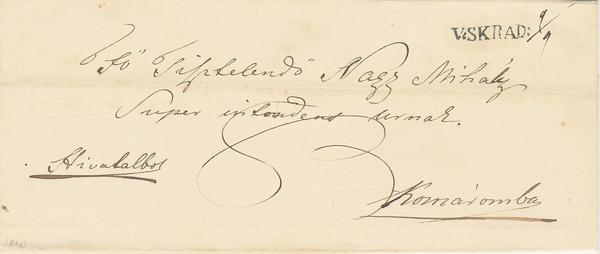 V:SKRAD: 9/9
Fő Tisztelendő Nagy Mihály
Super intendens urnak.
Hivatalból
Komáromba